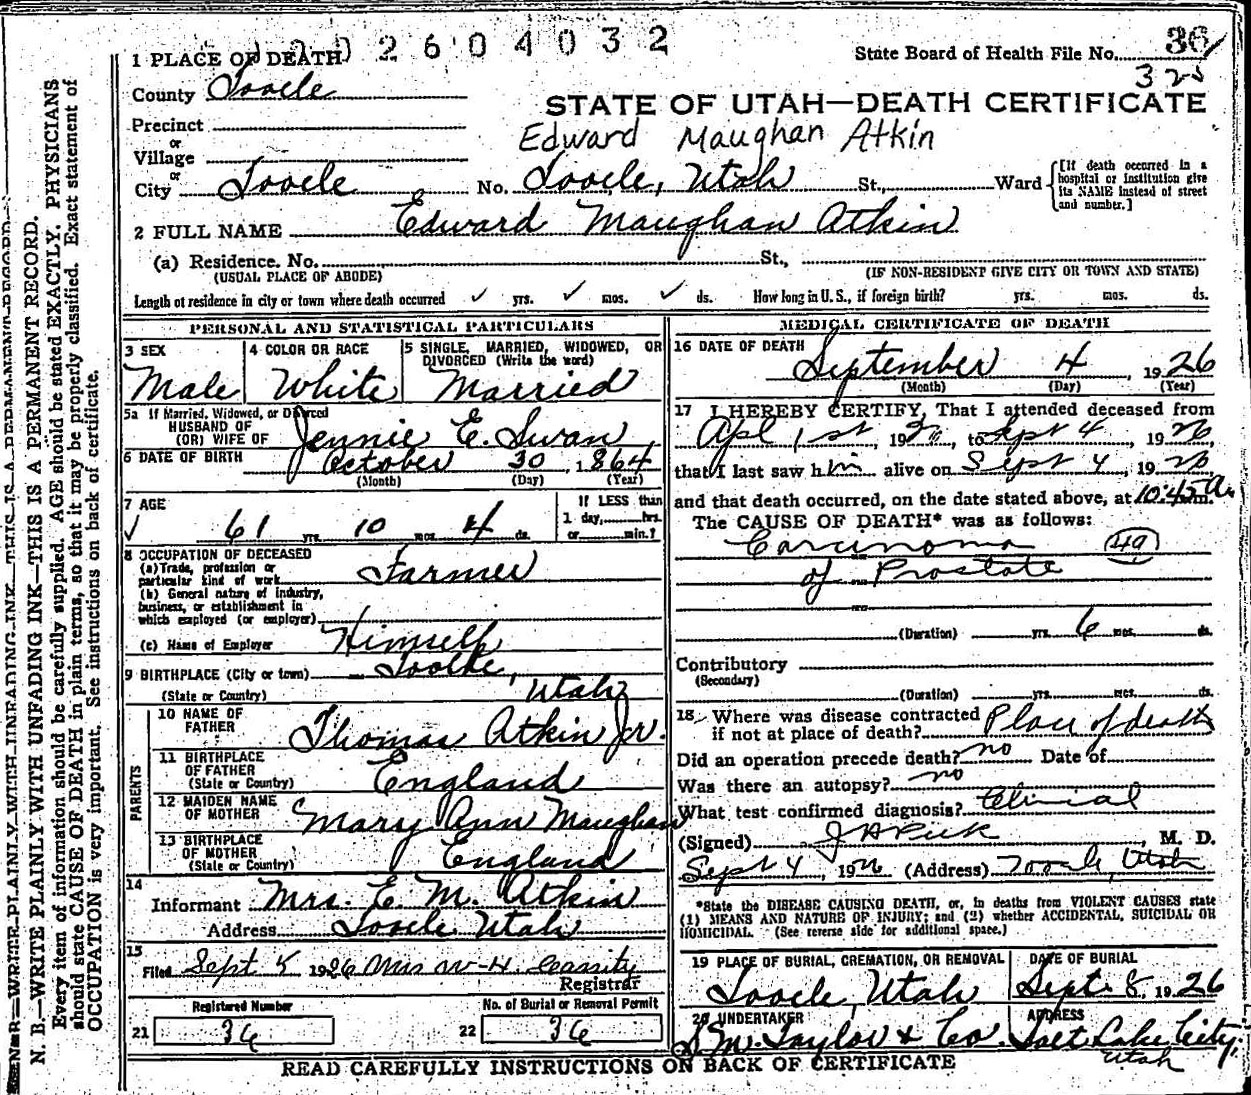 2604032
State Board of Health File No. 36
325
1 PLACE OF DEATH
County Tooele
STATE OF UTAH—DEATH CERTIFICATE
Precinct
or
Edward Maughan Atkin
Village
or
City Tooele No. Tooele, Utah St., Ward
[If death occurred in a
hospital or institution give
its NAME instead of street
and number.]
2 FULL NAME Edward Maughan Atkin
(a) Residence. No. St.,
(USUAL PLACE OF ABODE) (IF NON-RESIDENT GIVE CITY OR TOWN AND STATE)
Length of residence in city or town where death occurred ✓ yrs. ✓ mos. ✓ ds. How long in U. S., if foreign birth? yrs. mos. ds.
PERSONAL AND STATISTICAL PARTICULARS
3 SEX
Male
4 COLOR OR RACE
White
5 SINGLE, MARRIED, WIDOWED, OR
DIVORCED (Write the word)
Married
5a If Married, Widowed, or Divorced
HUSBAND OF
(OR) WIFE OF Jennie E. Swan
6 DATE OF BIRTH October 30, 1864
(Month) (Day) (Year)
7 AGE
✓ 61 yrs. 10 mos. 4 ds.
If LESS than
1 day, hrs.
or min.?
8 OCCUPATION OF DECEASED
(a) Trade, profession or
particular kind of work Farmer
(b) General nature of industry,
business, or establishment in
which employed (or employer)
(c) Name of Employer Himself
9 BIRTHPLACE (City or town) Tooele,
(State or Country) Utah
PARENTS
10 NAME OF
FATHER Thomas Atkin Jr.
11 BIRTHPLACE
OF FATHER
(State or Country) England
12 MAIDEN NAME
OF MOTHER Mary Ann Maughan
13 BIRTHPLACE
OF MOTHER
(State or Country) England
14
Informant Mrs. E. M. Atkin
Address Tooele Utah
15
Filed Sept 5 1926 Mrs W. H. Cassity
Registrar
Registered Number
21 36
No. of Burial or Removal Permit
22 36
MEDICAL CERTIFICATE OF DEATH
16 DATE OF DEATH
September 4, 1926
(Month) (Day) (Year)
17 I HEREBY CERTIFY, That I attended deceased from
Apl 1st, 1926, to Sept 4, 1926,
that I last saw him alive on Sept 4, 1926,
and that death occurred, on the date stated above, at 10:45 a.m.
The CAUSE OF DEATH* was as follows:
Carcinoma (49)
of Prostate
(Duration) yrs. 6 mos. ds.
Contributory
(Secondary)
(Duration) yrs. mos. ds.
18 Where was disease contracted
if not at place of death? Place of death
Did an operation precede death? no Date of
Was there an autopsy? no
What test confirmed diagnosis? Clinical
(Signed) J A Peck M. D.
Sept 4, 1926 (Address) Tooele, Utah
*State the DISEASE CAUSING DEATH, or, in deaths from VIOLENT CAUSES state
(1) MEANS AND NATURE OF INJURY; and (2) whether ACCIDENTAL, SUICIDAL OR
HOMICIDAL. (See reverse side for additional space.)
19 PLACE OF BURIAL, CREMATION, OR REMOVAL
Tooele, Utah
DATE OF BURIAL
Sept. 8, 1926
20 UNDERTAKER
S. M. Taylor & Co.
ADDRESS
Salt Lake City,
Utah
READ CAREFULLY INSTRUCTIONS ON BACK OF CERTIFICATE
N. B.—WRITE PLAINLY WITH UNFADING INK—THIS IS A PERMANENT RECORD.
Every item of information should be carefully supplied. AGE should be stated EXACTLY. PHYSICIANS
should state CAUSE OF DEATH in plain terms, so that it may be properly classified. Exact statement of
OCCUPATION is very important. See instructions on back of certificate.